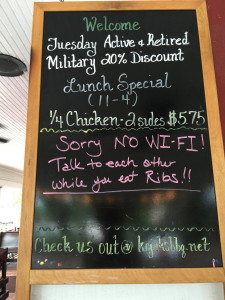 Welcome
Tuesday Active & Retired
Military 20% Discount
Lunch Special
(11-4)
1/4 Chicken-2 sides $5.75
Sorry NO WI-FI!
Talk to each other
while you eat Ribs!!
Check us out @